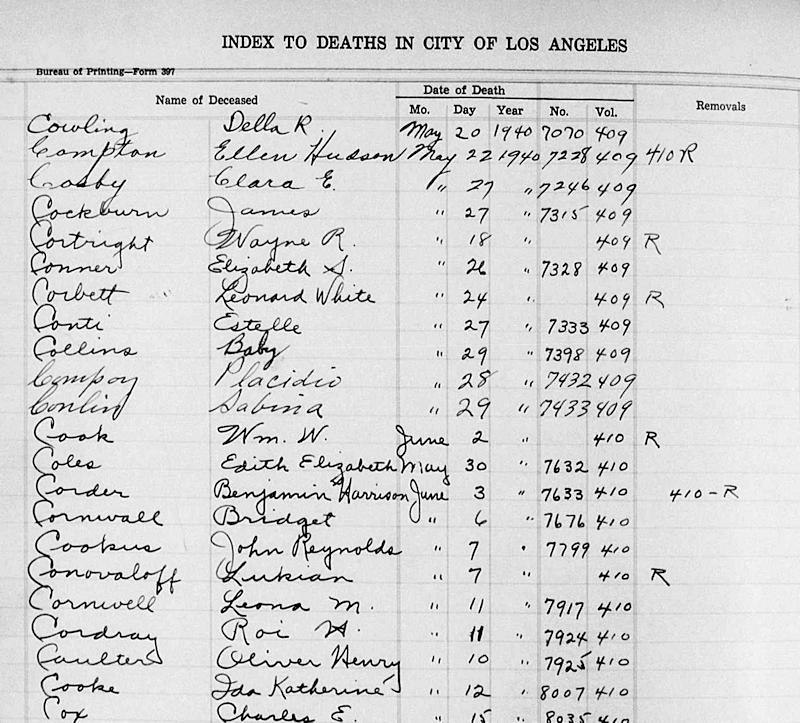 INDEX TO DEATHS IN CITY OF LOS ANGELES
Bureau of Printing—Form 397
Date of Death
Name of Deceased Mo. Day Year No. Vol. Removals
Cowling Della R. May 20 1940 7070 409
Compton Ellen Hudson May 22 1940 7228 409 410 R
Cosby Clara E. " 27 " 7246 409
Cockburn James " 27 " 7315 409
Cortright Wayne R. " 18 " 409 R
Conner Elizabeth S. " 26 " 7328 409
Corbett Leonard White " 24 " 409 R
Conti Estelle " 27 " 7333 409
Collins Baby " 29 " 7398 409
Campoy Placidio " 28 " 7432 409
Conlin Sabina " 29 " 7433 409
Cook Wm. W. June 2 " 410 R
Coles Edith Elizabeth May 30 " 7632 410
Corder Benjamin Harrison June 3 " 7633 410 410-R
Cornwall Bridget " 6 " 7676 410
Cookus John Reynolds " 7 " 7799 410
Conovaloff Lukian " 7 " 410 R
Cornwell Leona M. " 11 " 7917 410
Cordray Roi H. " 11 " 7924 410
Coulter Oliver Henry " 10 " 7925 410
Cooke Ida Katherine " 12 " 8007 410
Cox Charles E. " 15 " 8035 410